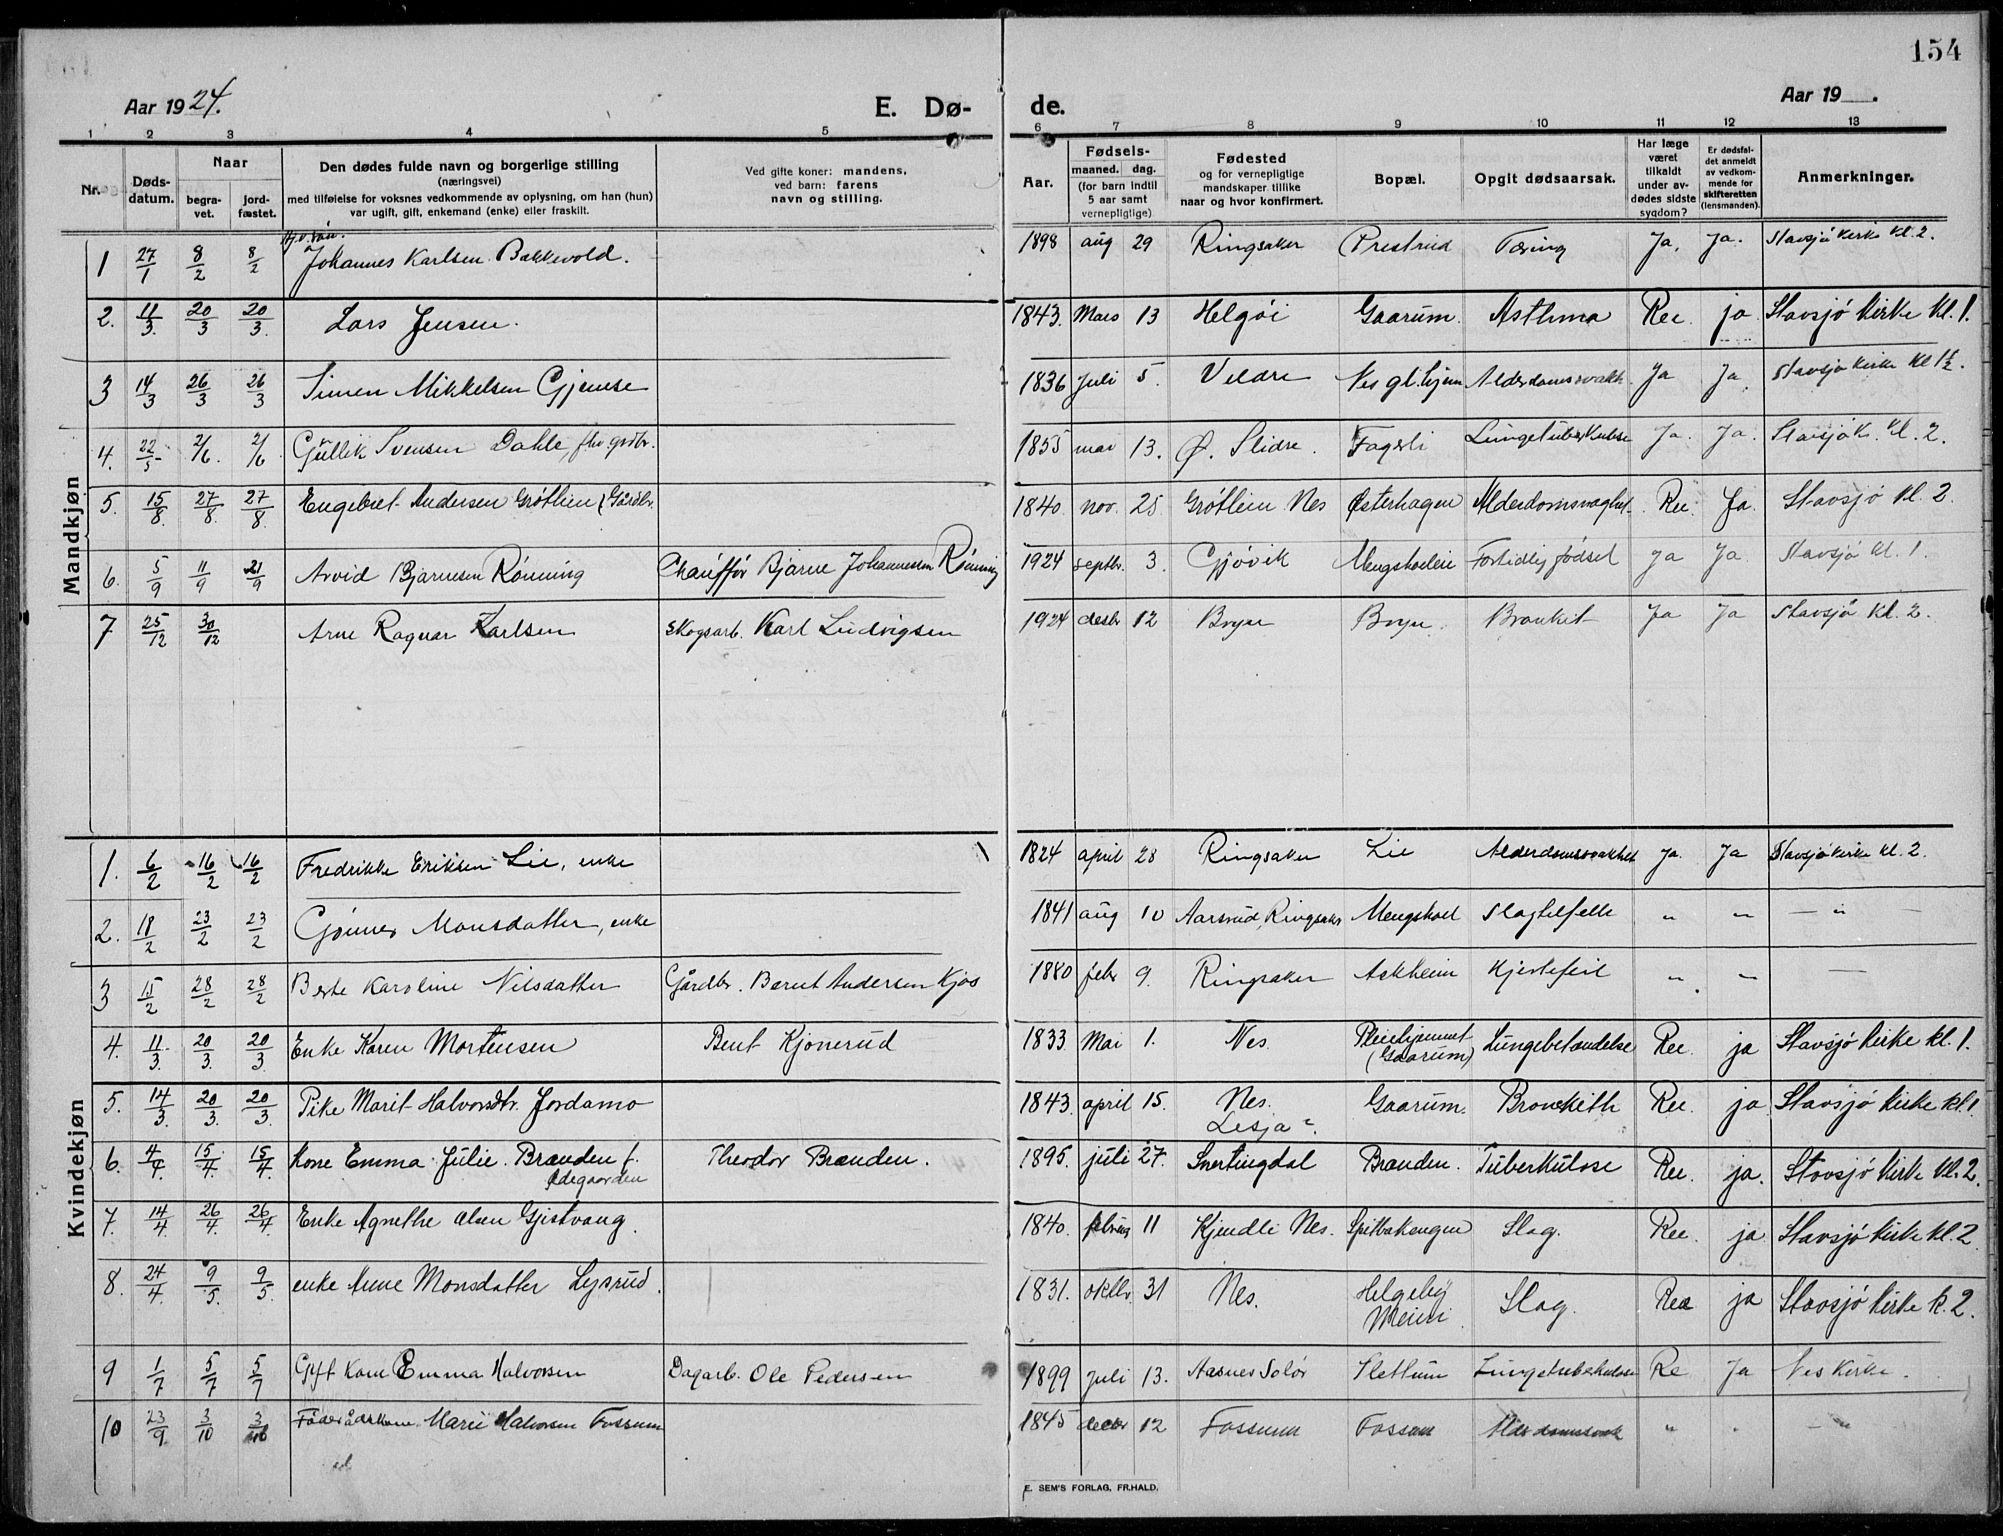 154
Aar 1924. E. Dø- de. Aar 19 .
1 2 3 4 5 6 7 8 9 10 11 12 13
Nr. Døds-datum. Naar begra-vet. jord-fæstet. Den dødes fulde navn og borgerlige stilling (næringsvei) med tilføielse for voksnes vedkommende av oplysning, om han (hun) var ugift, gift, enkemand (enke) eller fraskilt. Ved gifte koner: mandens, ved barn: farens navn og stilling. Aar. Fødsels- maaned. dag. (for barn indtil 5 aar samt vernepligtige) Fødested og for vernepligtige mandskaper tillike naar og hvor konfirmert. Bopæl. Opgit dødsaarsak. Har læge været tilkaldt under av-dødes sidste sygdom? Er dødsfal-det anmeldt av vedkom-mende for skifteretten (lensmanden). Anmerkninger.
Mandkjøn
1 27/1 8/2 8/2 Johannes Karlsen Bakkevold. 1898 aug 29 Ringsaker Prestrud Tæring Ja, Ja. Stavsjø kirke kl. 2.
2. 11/3. 20/3 20/3. Lars Jensen. 1843. Mars 13 Helgøi Gaarum. Asthma Ree. ja Stavsjø kirke kl. 1.
3 14/3 26/3 26/3 Simen Mikkelsen Gjemse 1836 Juli 5. Veldre Nes gl.hjem Alderdomssvakh. Ja Ja. Stavsjø kirke kl 1½.
4. 22/5 2/6. 2/6 Gullik Svensen Dahle, fhv grdbr. 1855 mai 13. Ø. Slidre. Fagerli Lungetuberkulose Ja. Ja. Stavsjø k. kl. 2.
5. 15/8. 27/8. 27/8. Engebret Andersen Grøtlien (Gårdbr. 1840. nov. 25 Grøtlein Nes Østerhagen Alderdomsvaghet. Ree. Ja. Stavsjø kl. 2.
6. 5/9 11/9 21/9 Arvid Bjarnesen Rønning Chauffør Bjarne Johannessen Rønning 1924 septbr. 3. Gjøvik Mengshoeleie Fortidlig fødsel ja Ja. Stavsjø kl. 1.
7 25/12 30/12 Arne Ragnar Karlsen Skogsarb. Karl Ludvigsen 1924 desbr 12 Bryn Bryn. Bronkit Ja Ja Stavsjø kl. 2.
Kvindekjøn
1. 6/2 16/2 16/2 Fredrikke Eriksen Lie, enke 1824 april 28 Ringsaker Lie Alderdomssvakhet Ja. Ja Stavsjø kirke kl. 2.
2. 18/2 23/2 23/2 Monsdatter, enke 1841 aug 10 Aarsrud, Ringsaker Mengshoel Slagtilfelle " " — " —
3 15/2 28/2 28/2 Berte Karoline Nilsdatter Gårdbr. Bernt Andersen Kjos 1880 febr 9. Ringsaker Askheim Hjertefeil " " —
4. 11/3. 20/3. 20/3. Enke Karen Mortensen Bent Kjonerud 1833. Mai 1. Nes. Pleiehjemmet (Gaarum) Lungebetændelse Ree. ja Stavsjø kirke kl. 1.
5. 14/3. 20/3. 20/3. Pike Marit Halvorsdtr. Jordamo 1843. april 15. Nes. Lesja ? Gaarum. Bronkith Ree. ja Stavsjø kirke kl. 1
6. 4/4. 15/4. 15/4. Kone Emma Julie Brænden f. Ødegaarden Theodor Brænden. 1895. juli 27. Snertingdal Brænden. Tuberkulose Ree. ja. Stavsjø kirke kl. 2.
7. 14/4. 26/4. 26/4. Enke Agnethe Olsen Gistvang. 1840. 11 Kjendli Nes. Slag. Ree. ja Stavsjø kirke kl. 2
8. 24/4. 9/5. 9/5. enke Anne Monsdatter Lysrud. 1831. oktbr. 31 Nes. Helgeby Meieri. Slag. Ree ja Stavsjø kirke k. 2.
9 1/7 5/7 5/7 Gift Kone Emma Halvorsen Dagarb. Ole Pedersen 1899 Juli 13. Aasnes Solør Slettum Lungetuberkulose Re Ja Nes kirke.
10 23/9 3/10 3/10 Føderådskone Marie Halvorsen Fossum 1845 decbr 12 Fossum Fossum " " — " —
E. SEM'S FORLAG, FR.HALD.